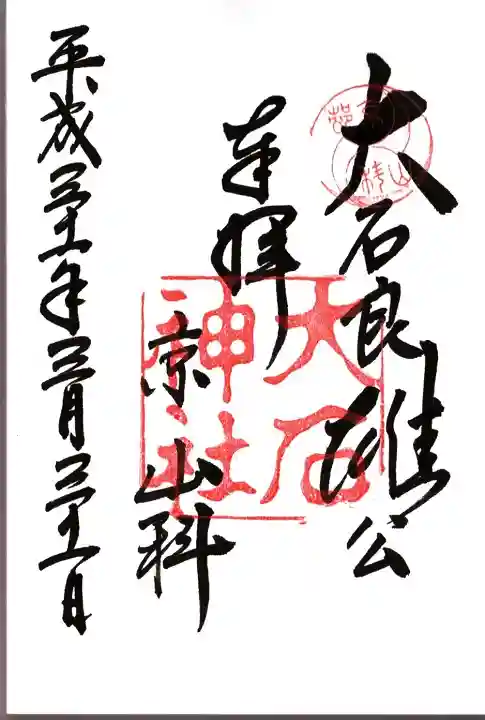 大石良雄公
奉拝
京山科
平成三十一年三月三十一日
大石
神社